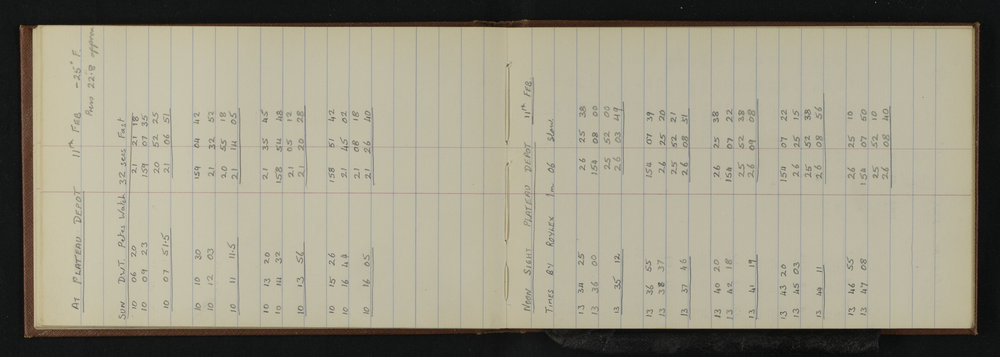 AT PLATEAU DEPOT 11th FEB -25° F.
Pres 22.8 approx
SUN D.W.T. Petes Watch 32 secs Fast
10 06 20 21 21 18
10 09 23 159 07 35
20 52 25
10 07 51.5 21 06 51
10 10 30 159 04 42
10 12 03 21 32 52
20 55 18
10 11 11.5 21 14 05
10 13 20 21 35 45
10 14 32 158 54 48
21 05 12
10 13 56 21 20 28
10 15 26 158 51 42
10 16 44 21 45 02
21 08 18
10 16 05 21 26 40
NOON SIGHT PLATEAU DEPOT 11th FEB
Times BY ROYLEX 1m 06 Slow
13 34 25 26 25 38
13 36 00 154 08 00
25 52 00
13 35 12 26 03 49
13 36 55 154 07 39
13 38 37 26 25 20
25 52 21
13 37 46 26 08 51
13 40 20 26 25 38
13 42 18 154 07 22
25 52 38
13 41 19 26 09 08
13 43 20 154 07 22
13 45 03 26 25 15
25 52 38
13 44 11 26 08 56
13 46 55 26 25 10
13 47 08 154 07 50
25 52 10
26 08 40